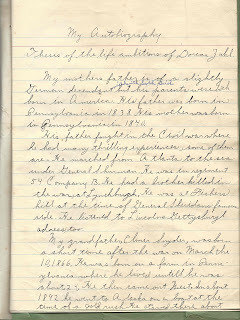 My Autobiography
Theses of the life ambitions of Dorcas Zahl
My mothers father is of a slightly
German decendent but his parents were both
born in America. His father was born in
Pennsylvania in 1838 His mother was born
in Pennsylvania in 1846.
His father fought in the Civil war where
he had many thrilling experiences, some of them
are: He marched from Atlanta to the sea
under General Sherman. He was in regiment
54 Company K. He had a brother killed in
the war at Lynchburg. He was at Fishers
hill at the time of General Sheridans famous
ride. He listened to Lincolns Gettysburg
address too.
My grandfather, Elmer Snyder, was born
a short time after the war on March the
10, 1866. He was born on a farm in Penn-
sylvania where he lived untill he was
about 23. He then came out West. In about
1892 he went to Alaska on a boat at the
time of a Gold rush. He stayed there about